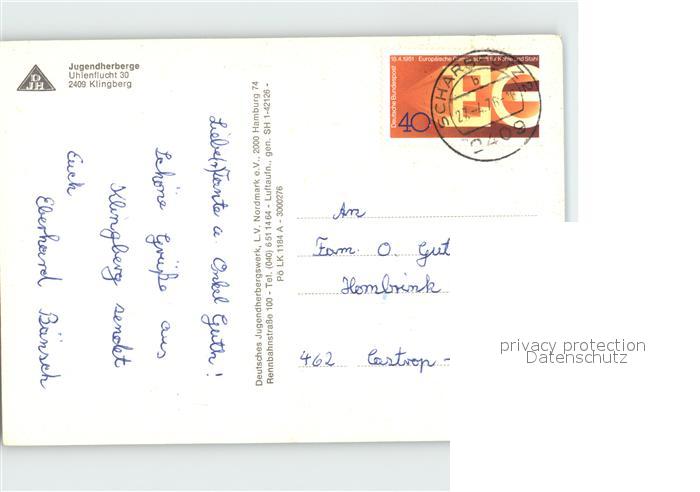 DJH
Jugendherberge
Uhlenflucht 30
2409 Klingberg
Liebe(r) Tante u. Onkel Guth!
Schöne Grüße aus
Klingberg sendet
Euch
Eberhard Bänsch
Deutsches Jugendherbergswerk, L.V. Nordmark e.V., 2000 Hamburg 74
Rennbahnstraße 100 - Tel. (040) 6511464 - Luftaufn., gen. SH 1-42126 -
Pö LK 1184 A - 3000276
18.4.1951 Europäische Gemeinschaft für Kohle und Stahl
Deutsche Bundespost
40
2409
An
Fam. O. Gut
Hombrink
462 Castrop-
privacy protection
Datenschutz